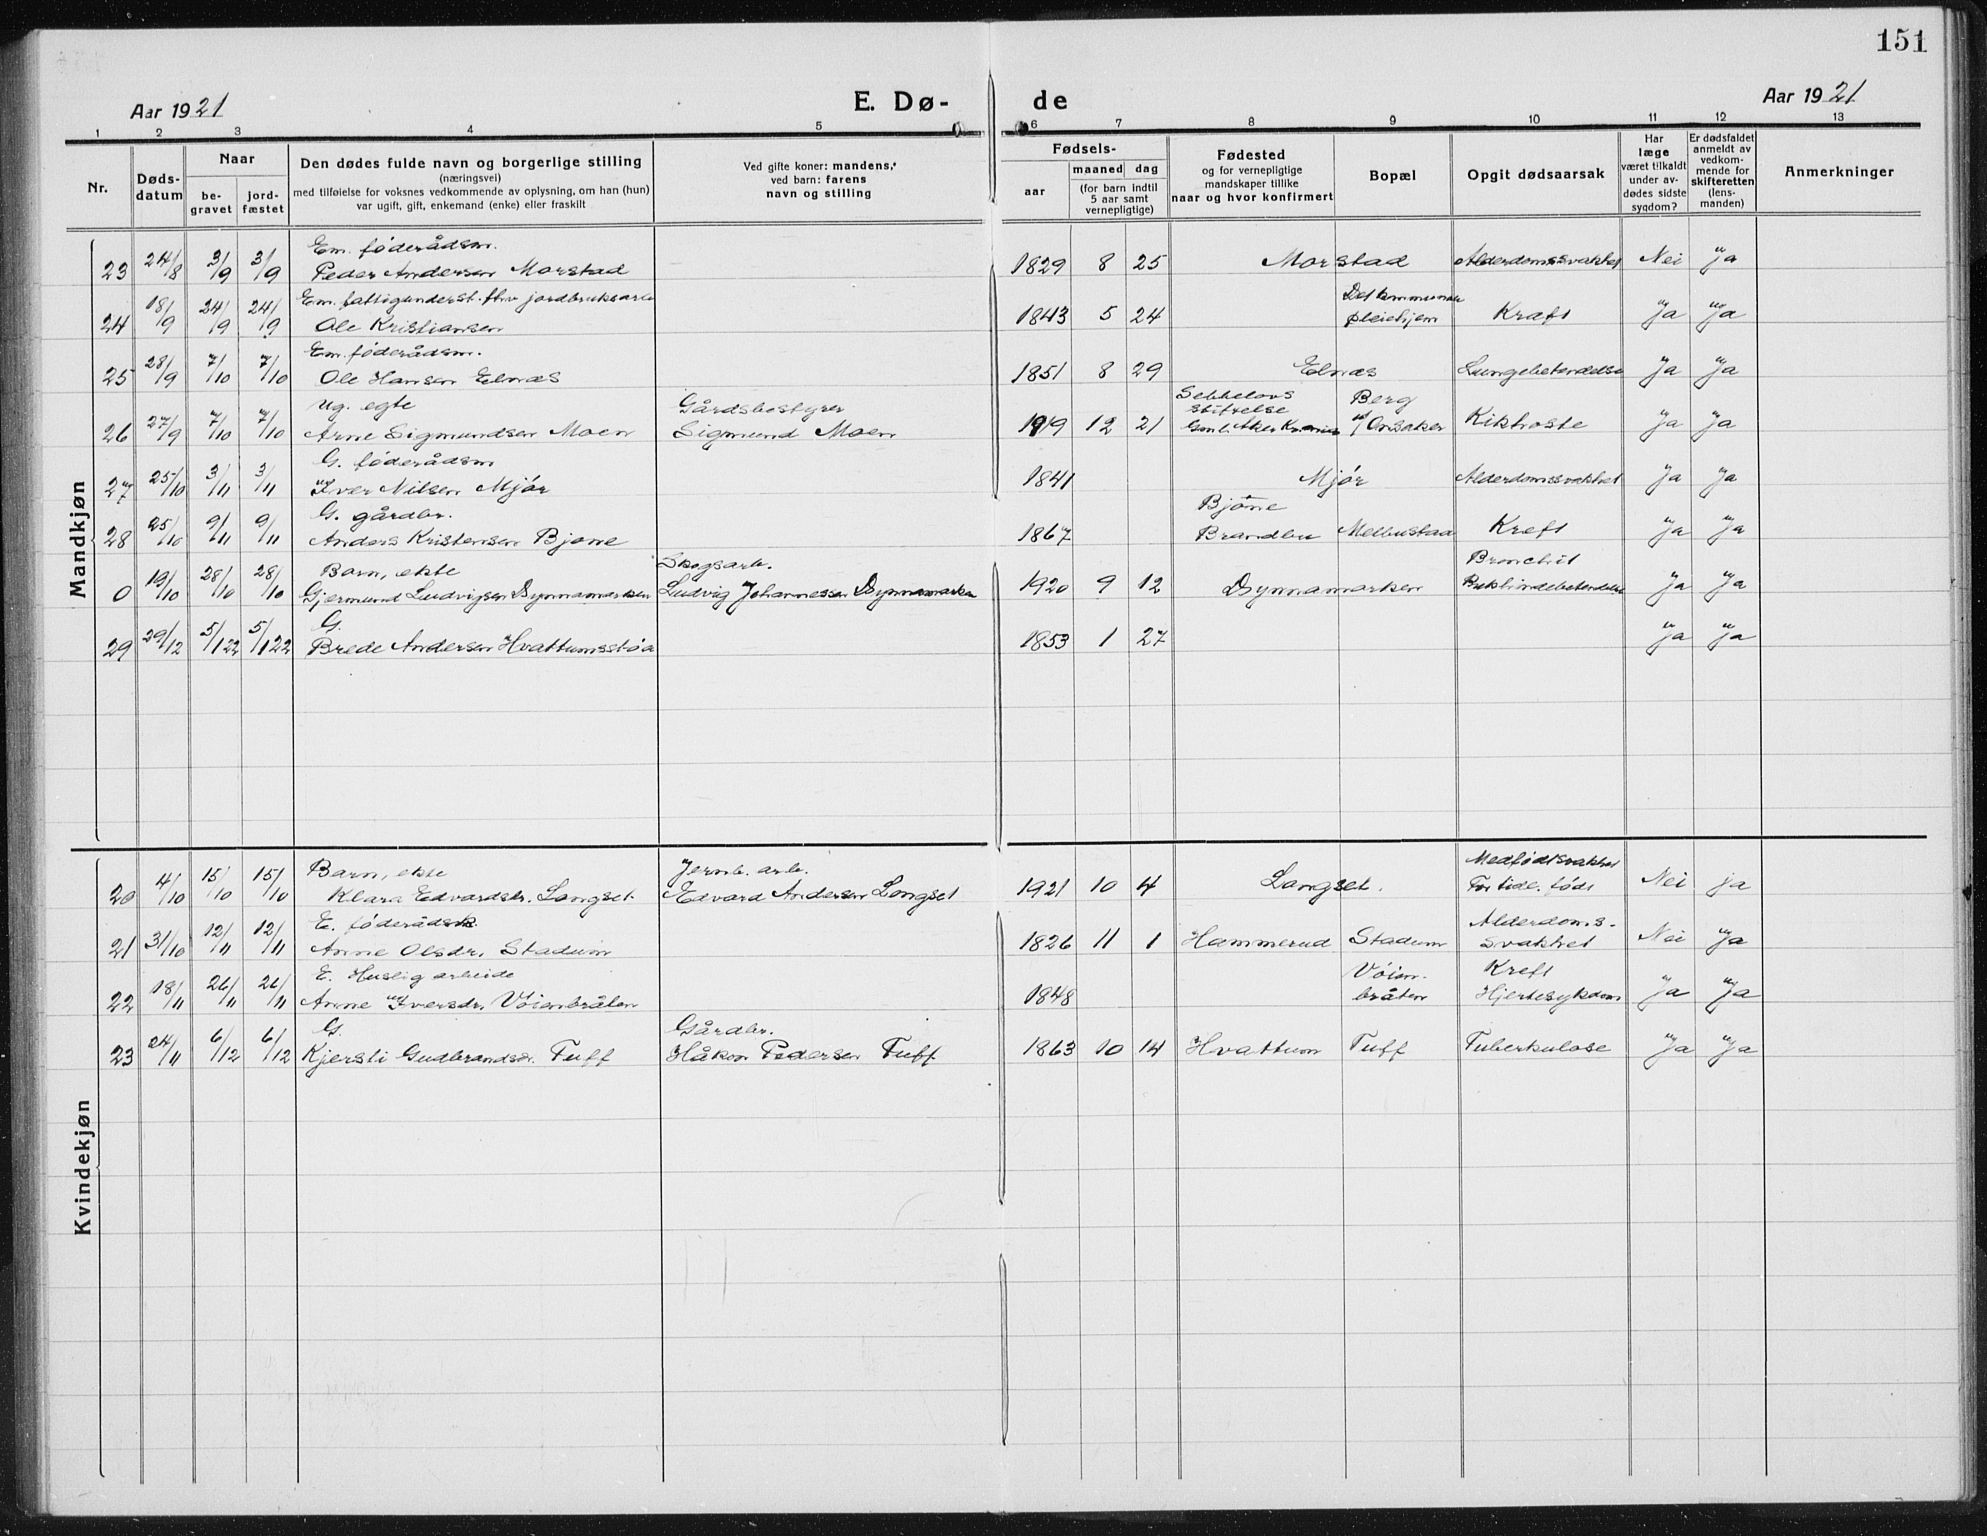 151
Aar 1921
E. Dø-
de
Aar 1921
1 2 3 4 5 6 7 8 9 10 11 12 13
Nr.
Døds-
datum
Naar
be-
gravet
jord-
fæstet
Den dødes fulde navn og borgerlige stilling
(næringsvei)
med tilføielse for voksnes vedkommende av oplysning, om han (hun)
var ugift, gift, enkemand (enke) eller fraskilt
Ved gifte koner: mandens,
ved barn: farens
navn og stilling
Fødsels-
aar
maaned dag
(for barn indtil
5 aar samt
vernepligtige)
Fødested
og for vernepligtige
mandskaper tillike
naar og hvor konfirmert
Bopæl
Opgit dødsaarsak
Har
læge
været tilkaldt
under av-
dødes sidste
sygdom?
Er dødsfaldet
anmeldt av
vedkom-
mende for
skifteretten
(lens-
manden)
Anmerkninger
Mandkjøn
Em. føderådsm.
23 24/8 3/9 3/9 Peder Andersen Morstad 1829 8 25 Morstad Alderdomssvakhet Nei Ja
Em. fattigunderst. fhv. jordbruksarb.
Det kommunale
24 18/9 24/9 24/9 Ole Kristiansen 1843 5 24 pleiehjem Kræft Ja Ja
Em. føderådsm.
25 28/9 7/10 7/10 Ole Hansen Elnæs 1851 8 29 Elnæs Lungebetendelse Ja Ja
Ug. egte Gårdsbestyrer Sebbelovs Berg
stiftelse
26 27/9 7/10 7/10 Arne Sigmundsen Moen Sigmund Moen 1919 12 21 Aker Onsaker Kikhoste Ja Ja
G. føderådsm
27 25/10 3/11 3/11 Iver Nilsen Mjør 1841 Mjør Alderdomssvakhet Ja Ja
G. gårdbr. Bjone
28 25/10 9/11 9/11 Anders Kristensen Bjone 1867 Brandbu Melbustad Kreft Ja Ja
Barn, ekte Skogsarb. Bronchit
0 19/10 28/10 28/10 Gjermund Ludvigsen Dynnamarken Ludvig Johannessen Dynnamarken 1920 9 12 Dynnamarken Ja Ja
G.
29 29/12 5/1 22 5/1 22 Brede Andersen Hvattumsstøa 1853 1 27 Ja Ja
Kvindekjøn
Barn, ekte Jernb. arb. Medfødt svakhet
20 4/10 15/10 15/10 Klara Edvardsdr. Langset. Edvard Andersen Langset 1921 10 4 Langset. For tidl. født Nei ja
E. føderådsk. Alderdoms-
21 31/10 12/11 12/11 Anne Olsdr. Stadum 1826 11 1 Hammerud Stadum svakhet Nei Ja
E. Huslig arbeide Vøien- Kreft
22 18/11 26/11 26/11 Anne Iversdr. Vøienbråten 1848 bråten Hjertesykdom Ja Ja
G. Gårdbr.
23 24/11 6/12 6/12 Kjersti Gudbrandsdr. Tuff Håkon Pedersen Tuff 1863 10 14 Hvattum Tuff Tuberkulose Ja Ja